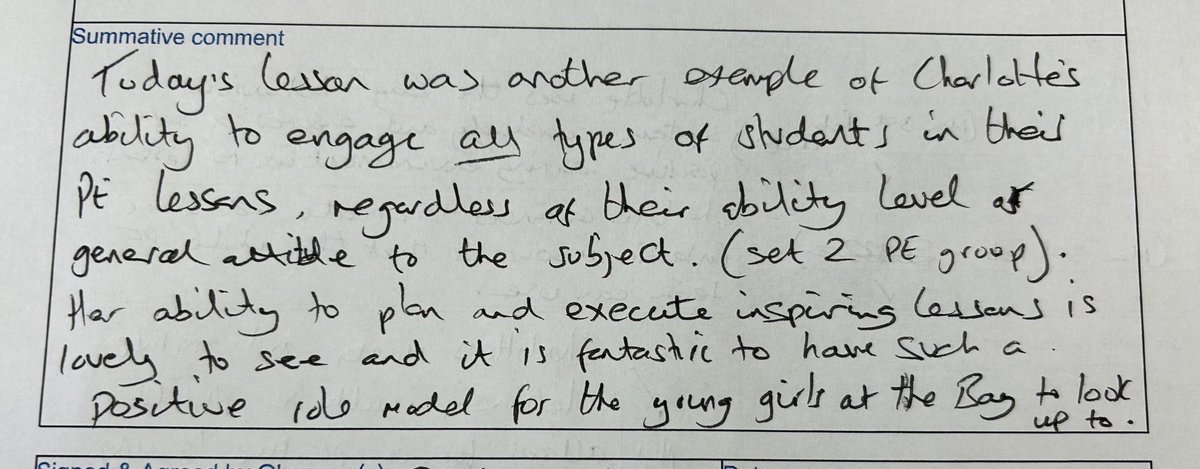 Summative comment
Today's lesson was another example of Charlotte's
ability to engage all types of students in their
PE lessons, regardless of their ability level or
general attitude to the subject. (set 2 PE group).
Her ability to plan and execute inspiring lessons is
lovely to see and it is fantastic to have such a
positive role model for the young girls at the Bay to look
up to.